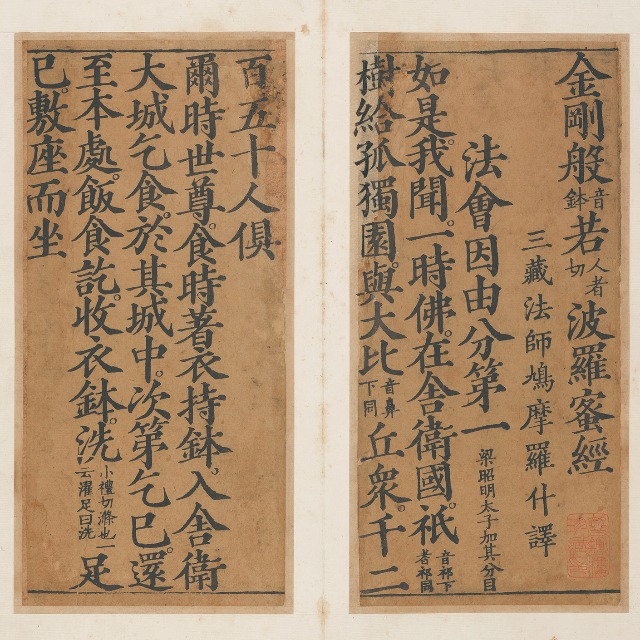 金剛般音鉢若人者切波羅蜜經
三藏法師鳩摩羅什譯
法會因由分第一梁昭明太子加其分目
如是我聞。一時佛。在舍衛國。祇音祁下者祁同
樹給孤獨園。與大比音鼻下同丘衆。千二
百五十人俱
爾時世尊。食時著衣持鉢。入舍衛
大城乞食。於其城中。次第乞已。還
至本處。飯食訖。收衣鉢。洗小禮切滌也一云濯足曰洗足
已。敷座而坐